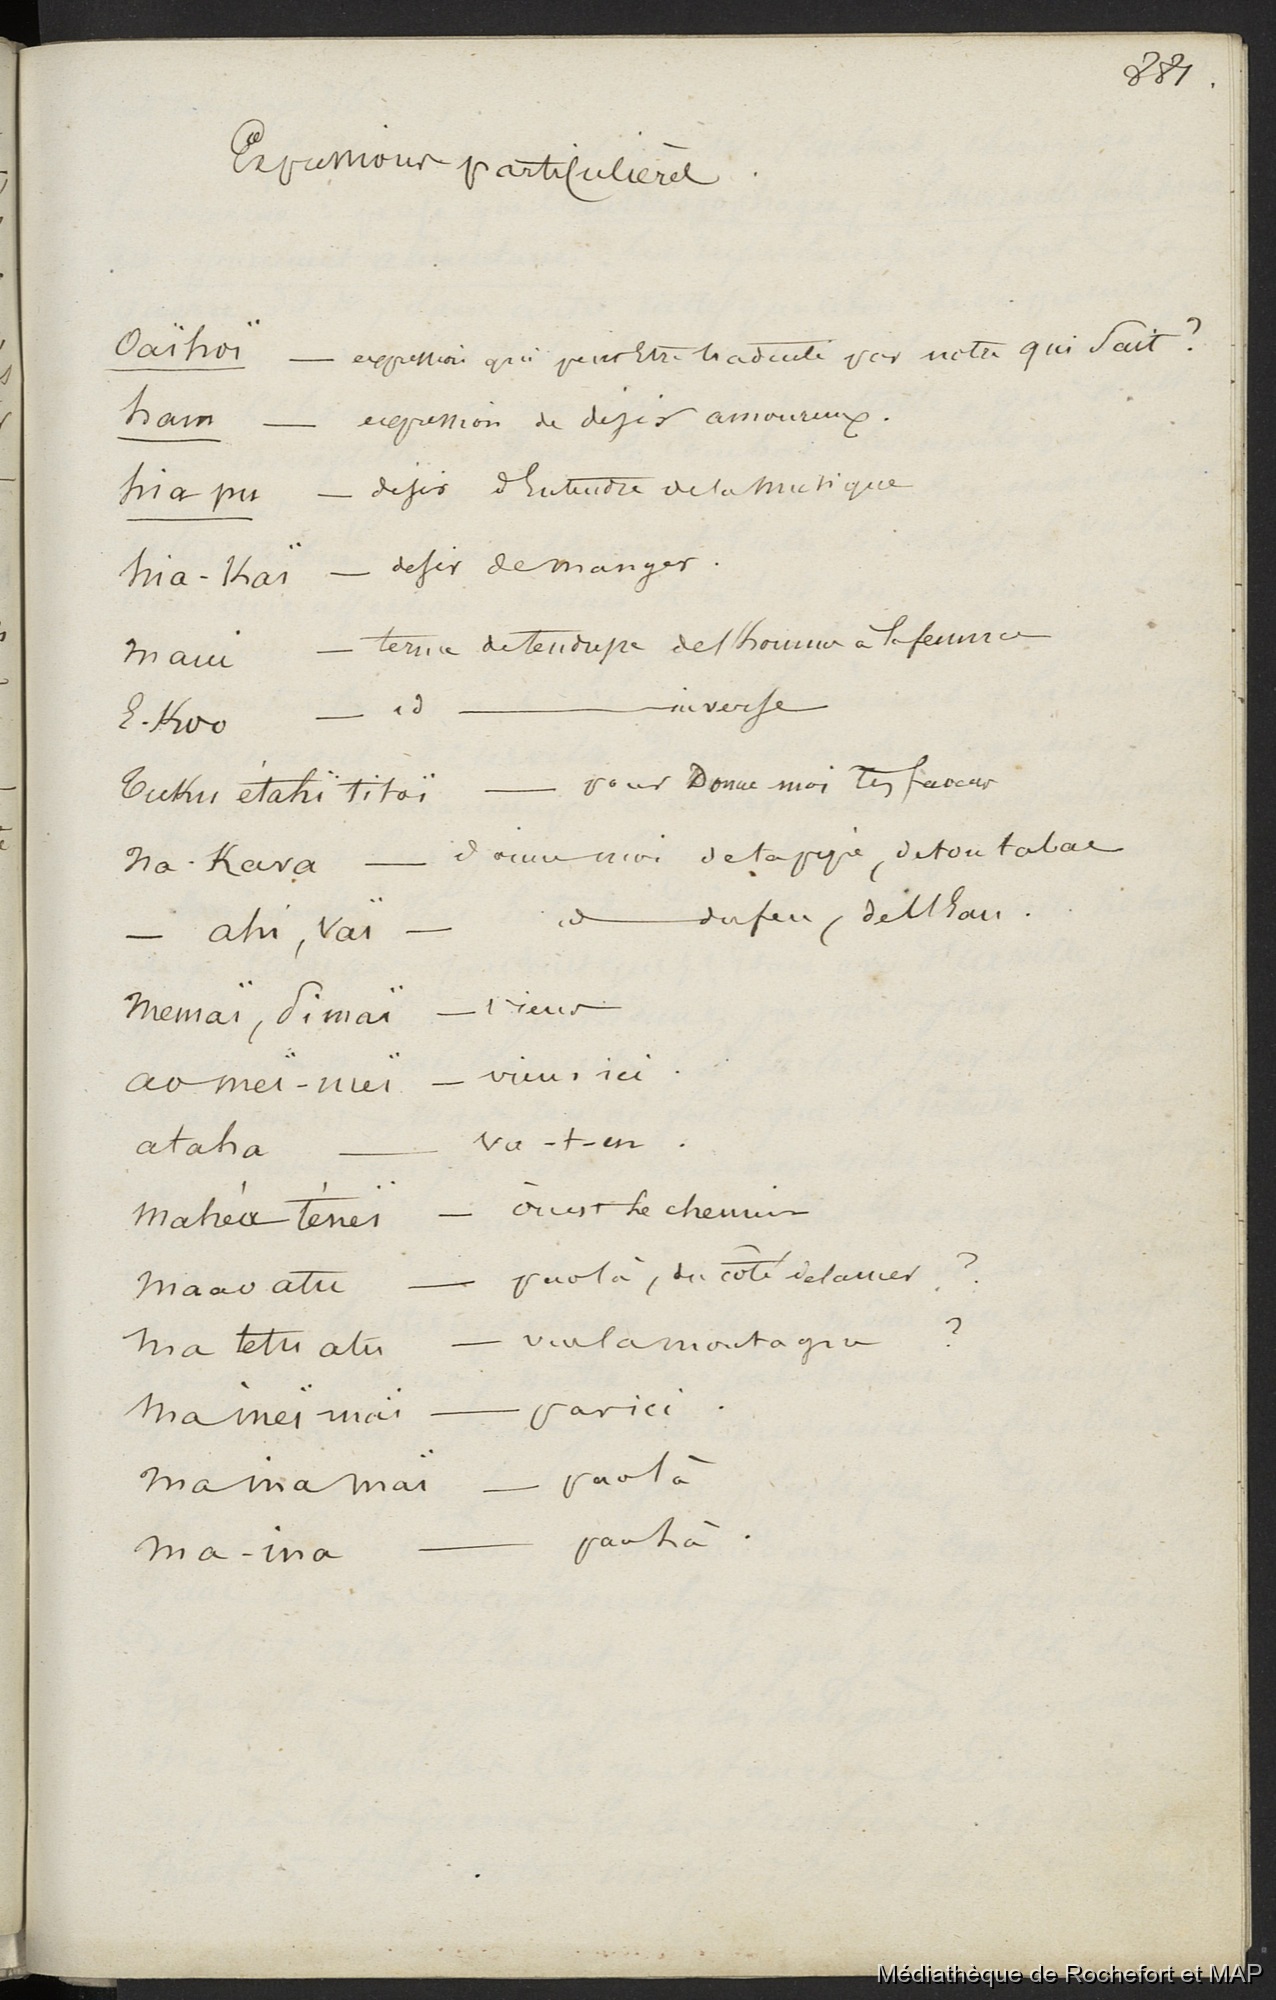 281.
Expressions particulières.
Oaïhoï — expression qui peut Etre traduite par notre qui Sait ?
ham — expression de désir amoureux.
hia pu — désir d'Entendre de la musique
hia-Kaï — désir de manger.
maui — terme de tendresse de l'homme à la femme
E-Koo — id — inverse
Tuku étahï titoï — pour Donne moi tes faveurs
na-Kava — donne moi de ta pipe, de ton tabac
— ahi, vaï — id — du feu, de l'Eau.
memaï, dimaï — viens
ao meï-meï — viens ici.
ataha — va-t-en.
mahéa téneï — òu est le chemin
maao atu — par là, du côté de la mer ?
ma tetu atu — vers la montagne ?
ma ineï maï — par ici.
ma ina maï — par là
ma-ina — par là.
Médiathèque de Rochefort et MAP